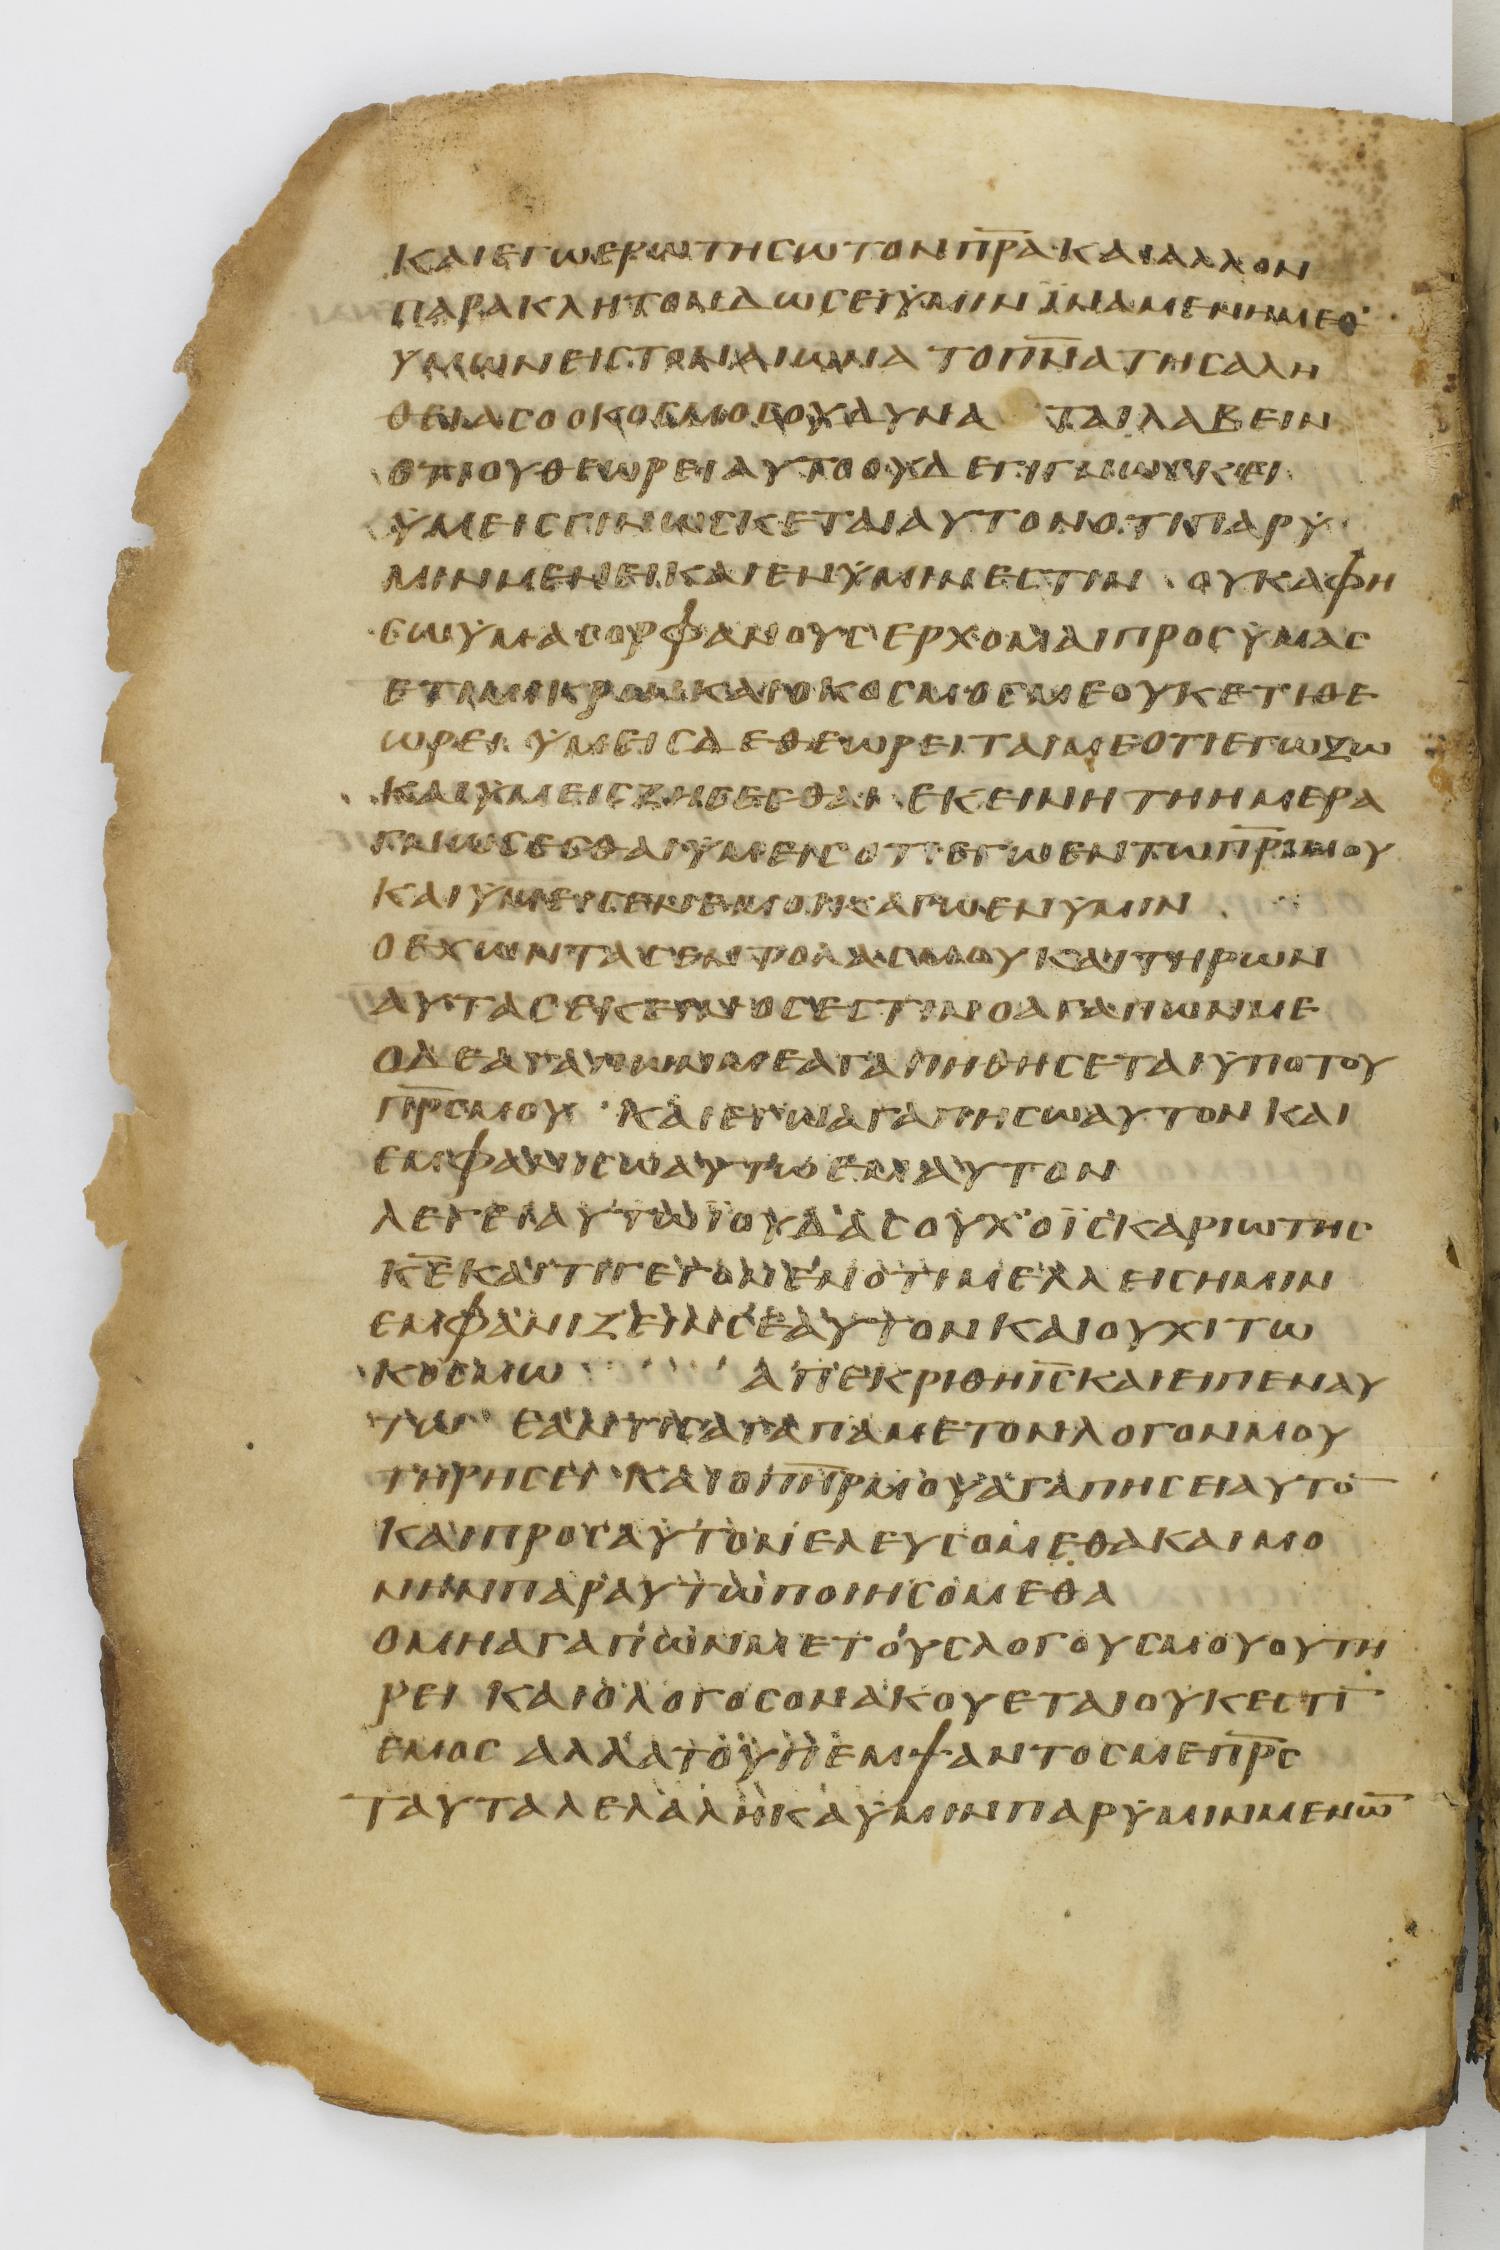 ΚΑΙΕΓΩΕΡΩΤΗCΩΤΟΝΠ̅Ρ̅Α̅·ΚΑΙΑΛΛΟΝ
ΠΑΡΑΚΛΗΤΟΝΔΩCΕΙΫΜΙΝΪΝΑΜΕΝΗΜΕΘ᾽
ΥΜΩΝΕΙCΤΟΝΑΙΩΝΑΤΟΠ̅Ν̅Α̅ΤΗCΑΛΗ
ΘΕΙΑCΟΟΚΟCΜΟCΟΥΔΥΝΑ ΤΑΙΛΑΒΕΙΝ
ΟΤΙΟΥΘΕΩΡΕΙΑΥΤΟΟΥΔΕΓΙΓΝΩCΚΕΙ
ΫΜΕΙCΓΙΝΩCΚΕΤΑΙΑΥΤΟΝΟΤΙΠΑΡΫ
ΜΙΝΜΕΝΕΙΚΑΙΕΝΫΜΙΝΕCΤΙΝ ΟΥΚΑΦΗ
CΩΫΜΑCΟΡΦΑΝΟΥCΕΡΧΟΜΑΙΠΡΟCΫΜΑC
ΕΤΙΜΙΚΡΟΝΚΑΙΟΚΟCΜΟCΜΕΟΥΚΕΤΙΘΕ
ΩΡΕΙ ΫΜΕΙCΔΕΘΕΩΡΕΙΤΑΙΜΕΟΤΙΕΓΩΖΩ
ΚΑΙΫΜΕΙCΖΗCΕCΘΑΙ ΕΚΕΙΝΗΤΗΗΜΕΡΑ
ΓΝΩCΕCΘΑΙΫΜΕΙCΟΤΙΕΓΩΕΝΤΩΠ̅Ρ̅Ι̅ΜΟΥ
ΚΑΙΫΜΕΙCΕΝΕΜΟΙΚΑΓΩΕΝΥΜΙΝ
ΟΕΧΩΝΤΑCΕΝΤΟΛΑCΜΟΥΚΑΙΤΗΡΩΝ
ΑΥΤΑCΕΚΕΙΝΟCΕCΤΙΝΟΑΓΑΠΩΝΜΕ
ΟΔΕΑΓΑΠΩΝΜΕΑΓΑΠΗΘΗCΕΤΑΙΫΠΟΤΟΥ
Π̅Ρ̅C̅ΜΟΥ·ΚΑΙΕΓΩΑΓΑΠΗCΩΑΥΤΟΝΚΑΙ
ΕΜΦΑΝΙCΩΑΥΤΩΕΜΑΥΤΟΝ
ΛΕΓΕΙΑΥΤΩΪΟΥΔΑCΟΥΧ᾽ΟΪCΚΑΡΙΩΤΗC
Κ̅Ε̅ΚΑΙΤΙΓΕΓΟΝΕΝΟΤΙΜΕΛΛΕΙCΗΜΙΝ
ΕΜΦΑΝΙΖΕΙΝCΕΑΥΤΟΝΚΑΙΟΥΧΙΤΩ
ΚΟCΜΩ ΑΠΕΚΡΙΘΗΙ̅C̅ΚΑΙΕΙΠΕΝΑΥ
ΤΩ ΕΑΝΤΙCΑΓΑΠΑΜΕΤΟΝΛΟΓΟΝΜΟΥ
ΤΗΡΗCΕΙ ΚΑΙΟΠ̅Η̅Ρ̅ΜΟΥΑΓΑΠΗCΕΙΑΥΤΟ̅
ΚΑΙΠΡΟCΑΥΤΟΝΕΛΕΥCΟΜΕΘΑΚΑΙΜΟ
ΝΗΝΠΑΡΑΥΤΩΠΟΙΗCΟΜΕΘΑ
ΟΜΗΑΓΑΠΩΝΜΕΤΟΥCΛΟΓΟΥCΜΟΥΟΥΤΗ
ΡΕΙ ΚΑΙΟΛΟΓΟCΟΝΑΚΟΥΕΤΑΙΟΥΚΕCΤΙ̅
ΕΜΟC ΑΛΛΑΤΟΥΠΕΜΨΑΝΤΟCΜΕΠ̅Ρ̅C̅
ΤΑΥΤΑΛΕΛΑΛΗΚΑΫΜΙΝΠΑΡΫΜΙΝΜΕΝΩ̅